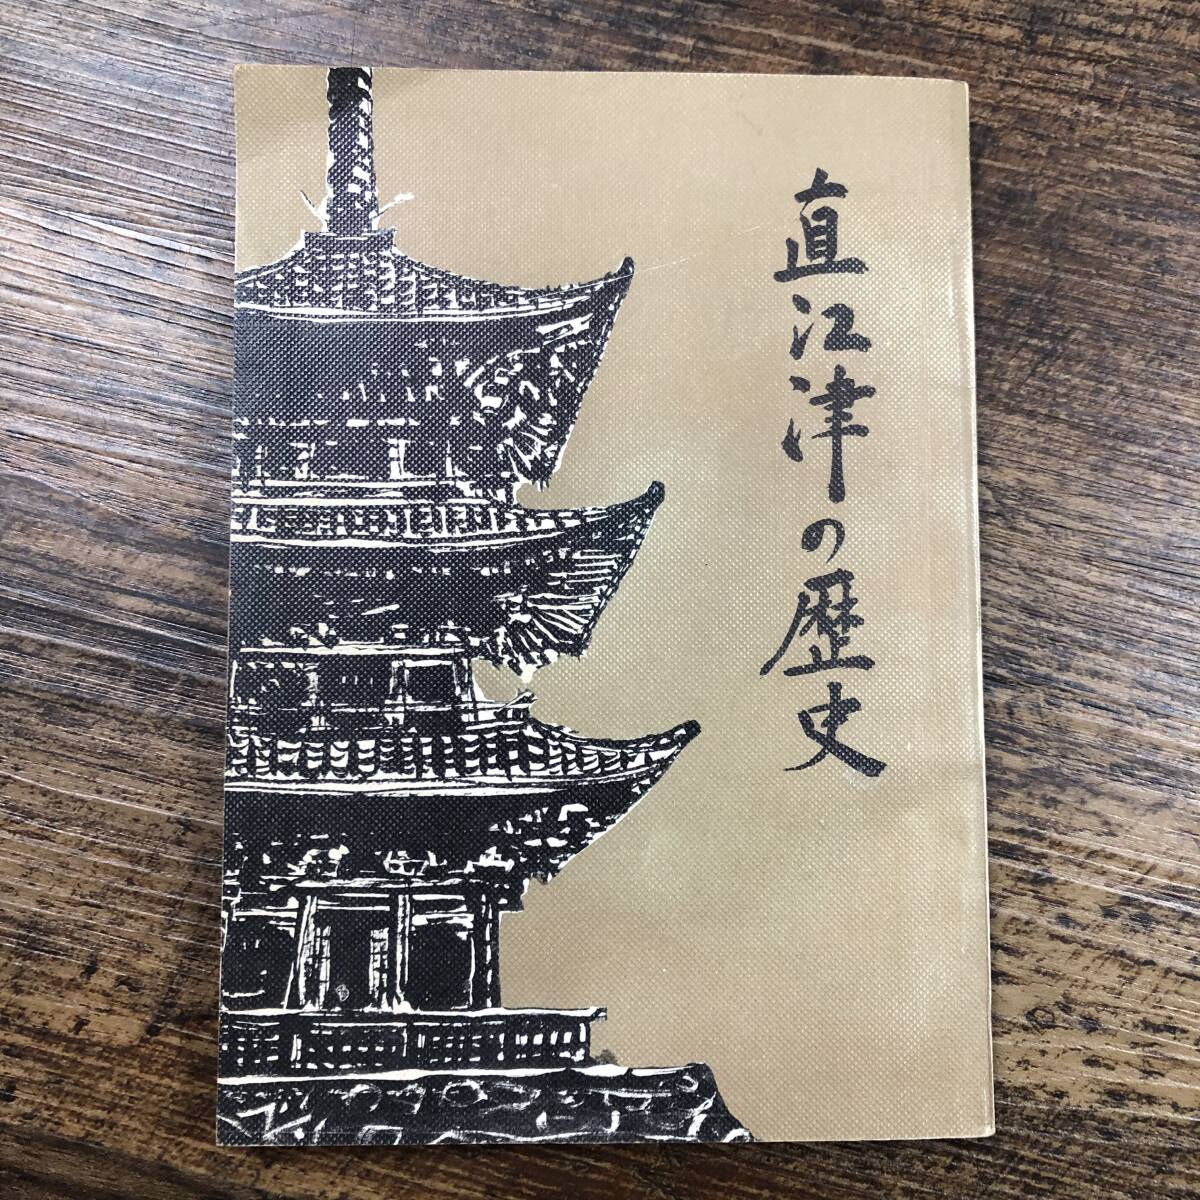 直江津の歴史